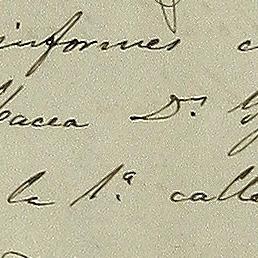 informes
bacea Dr.
le 1ª. calle